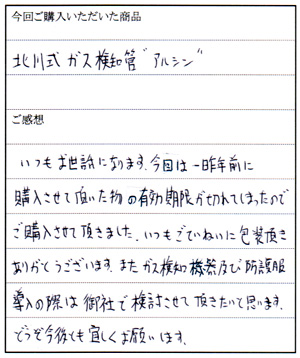 今回ご購入いただいた商品
北川式 ガス検知管 "アルシン"
ご感想
いつもお世話になります。今回は一昨年前に
購入させて頂いた物の有効期限が切れてしまったので
ご購入させて頂きました。いつもごていねいに包装頂き
ありがとうございます。またガス検知機器及び防護服
導入の際は御社で検討させて頂きたいと思います。
どうぞ今後とも宜しくお願いします。